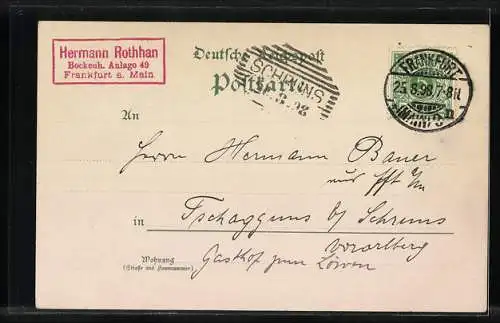 Hermann Rothhan
Bockenh. Anlage 49
Frankfurt a. Main
Deutsche Reichspost
Postkarte
SCHRUNS
FRANKFURT
25.8.98 7-8N.
(MAIN)
An
Herrn Hermann Bauer
in Tschagguns b/ Schruns
Vorarlberg
Wohnung
(Straße und Hausnummer)
Gasthof zum Löwen